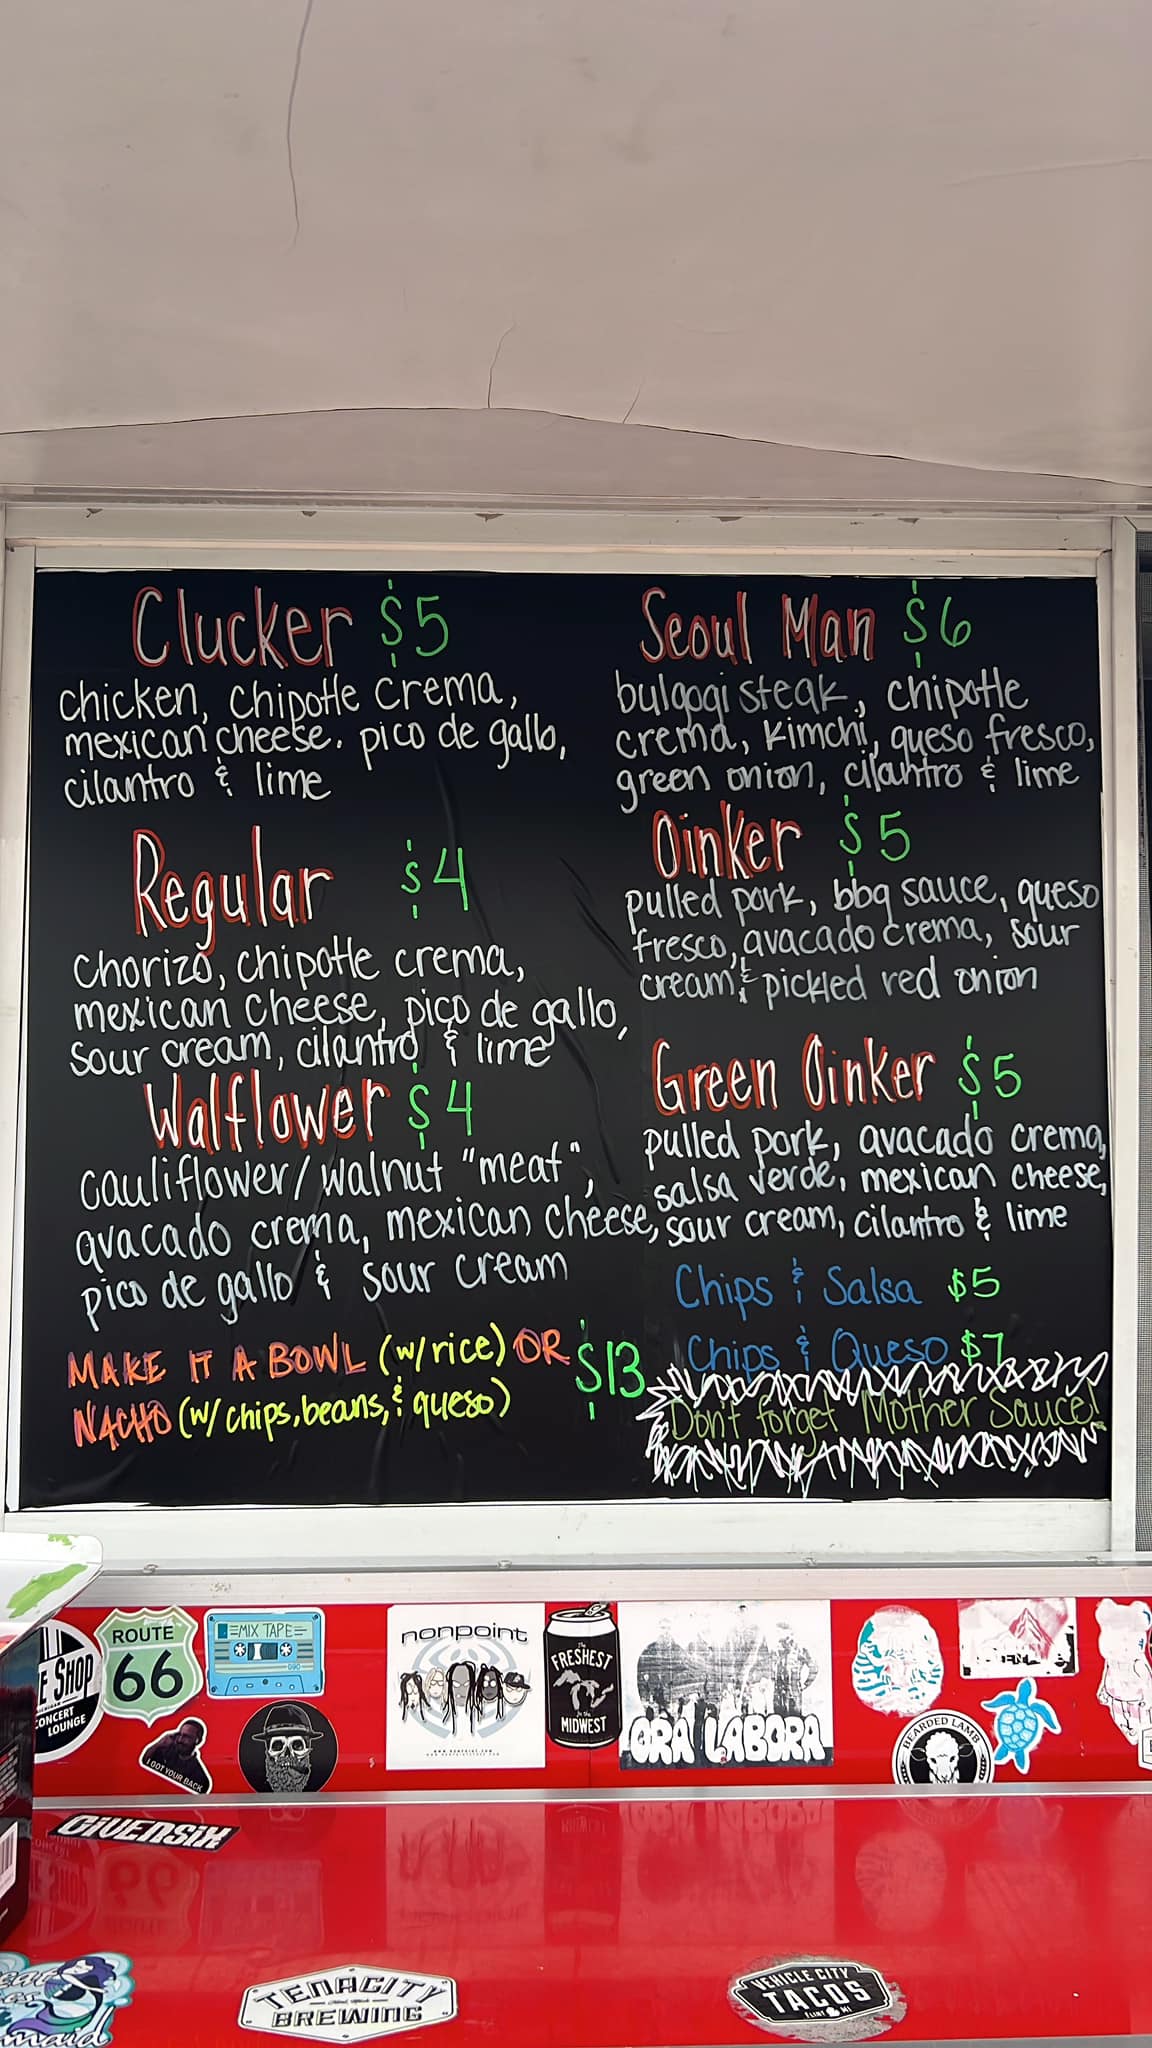 Clucker $5
chicken, chipotle crema,
mexican cheese. pico de gallo,
cilantro & lime
Regular $4
chorizo, chipotle crema,
mexican cheese, pico de gallo,
sour cream, cilantro & lime
Walflower $4
cauliflower/walnut "meat",
avacado crema, mexican cheese,
pico de gallo & sour cream
MAKE IT A BOWL (w/rice) OR
NACHO (w/chips, beans, & queso)
$13
Seoul Man $6
bulgogi steak, chipotle
crema, kimchi, queso fresco,
green onion, cilantro & lime
Oinker $5
pulled pork, bbq sauce, queso
fresco, avacado crema, sour
cream & pickled red onion
Green Oinker $5
pulled pork, avacado crema,
salsa verde, mexican cheese,
sour cream, cilantro & lime
Chips & Salsa $5
Chips & Queso $7
Don't forget Mother Sauce!
SHOP
CONCERT
LOUNGE
ROUTE
66
MIX TAPE
I GOT YOUR BACK
nonpoint
WWW.NONPOINT.COM
The
FRESHEST
in the
MIDWEST
ORA LABORA
BEARDED LAMB
GIVENSIX
TENACITY
BREWING
VEHICLE CITY
TACOS
FLINT MI